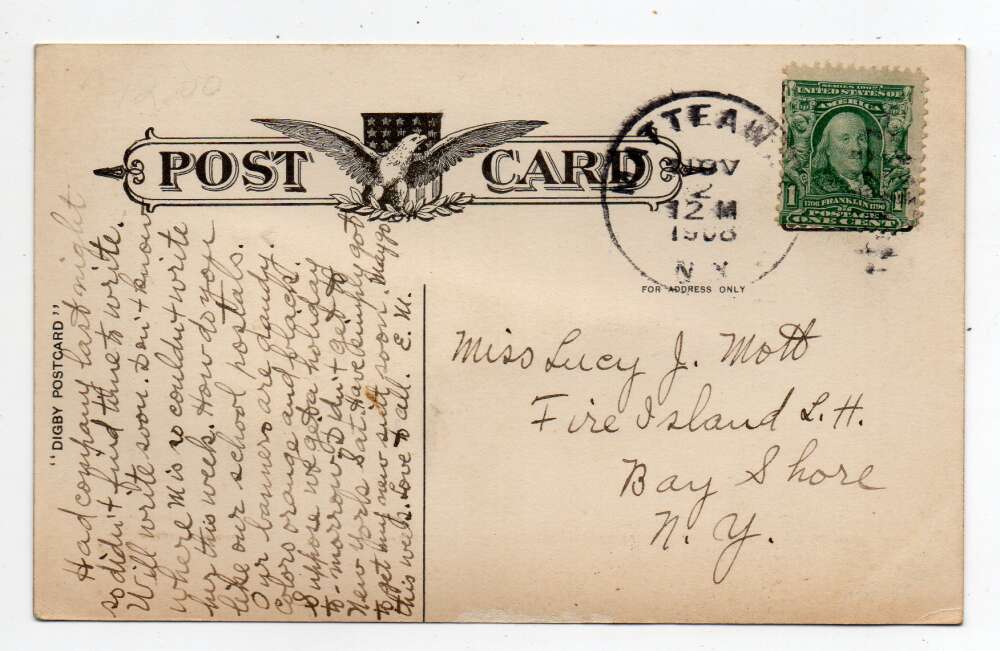 12.00
POST CARD
TTEAW
NOV
2
12 M
1908
N.Y.
SERIES 1902
UNITED STATES OF
AMERICA
1 1
1706 FRANKLIN 1790
POSTAGE
ONE CENT
FOR ADDRESS ONLY
"DIGBY POSTCARD"
Had company last night
so didn't find time to write.
Will write soon. Don't know
where M is so couldn't write
her this week. How do you
like our school postals.
Our banners are dandy.
Colors orange and black.
Suppose we get a holiday
to-morrow. Didn't get to
New York Sat. Have simply got
to get my new suit soon. May go
this week. Love to all. E. M.
Miss Lucy J. Mott
Fire Island L. H.
Bay Shore
N. Y.